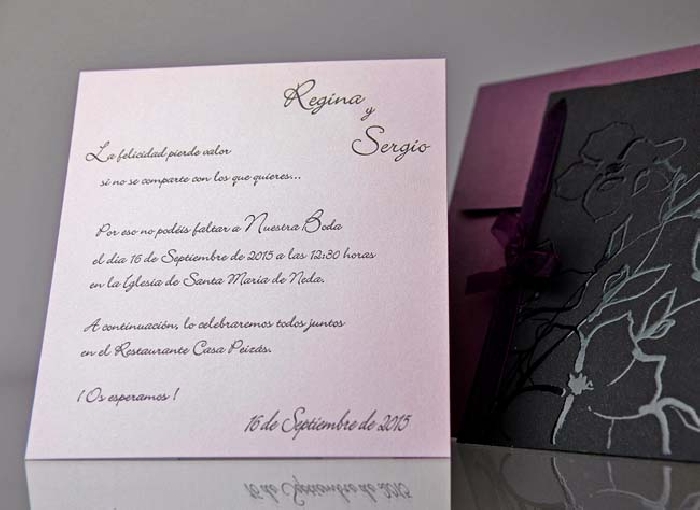 Regina
y
Sergio
La felicidad pierde valor
si no se comparte con los que quieres...
Por eso no podéis faltar a Nuestra Boda
el día 16 de Septiembre de 2015 a las 12:30 horas
en la Iglesia de Santa Maria de Neda.
A continuación, lo celebraremos todos juntos
en el Restaurante Casa Peizás.
¡Os esperamos!
16 de Septiembre de 2015